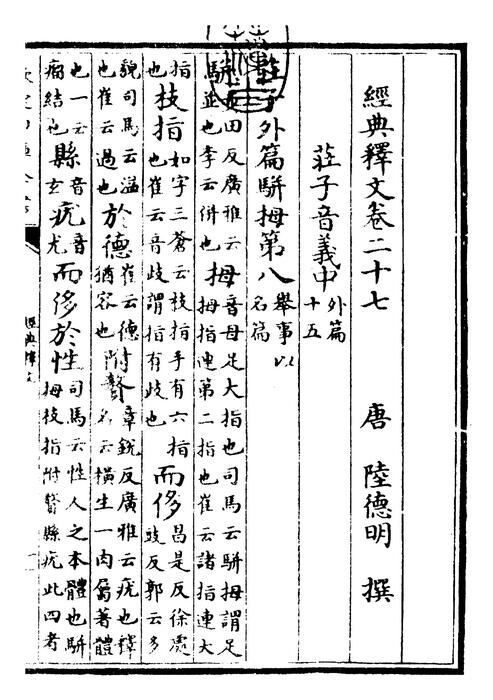 經典釋文卷二十七 唐 陸德明 撰
莊子音義中 外篇十五
莊子外篇駢拇第八 舉事以名篇
步田反廣雅云駢並也李云併也拇音母足大指也司馬云駢拇謂足拇指連第二指也崔云諸指連大
指也枝指如字三蒼云枝指手有六指也崔云音歧謂指有歧也而侈昌是反徐處豉反郭云多
貌司馬云溢也崔云過也於德崔云德猶容也附贅章銳反廣雅云疣也釋名云橫生一肉屬著體
也一云瘤結也縣音玄疣音尤而侈於性司馬云性人之本體也駢拇枝指附贅縣疣此四者
經典釋文